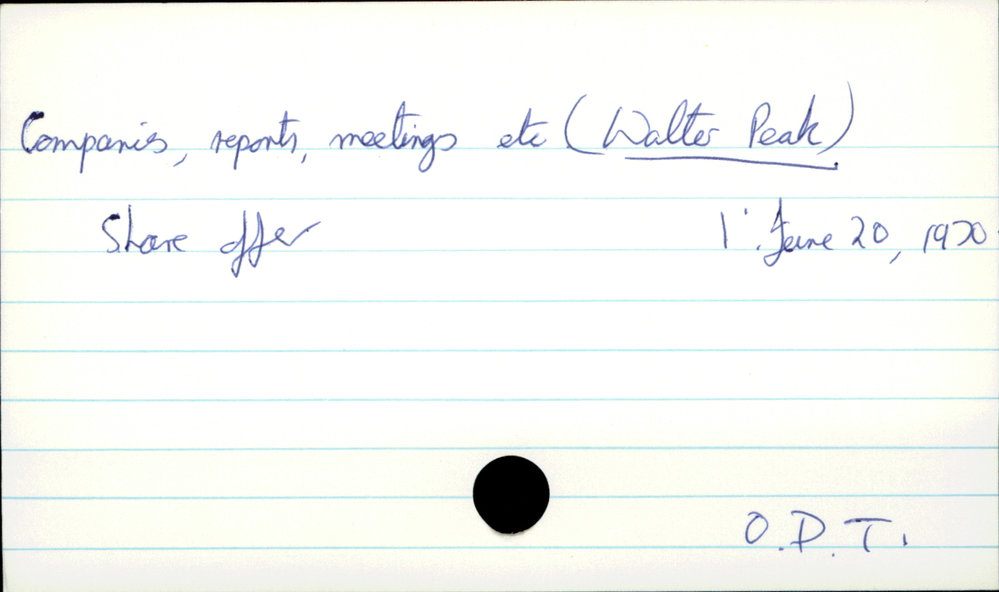 Companies, reports, meetings etc (Walter Peak)
Share offer 1. June 20, 1970
O.D.T.